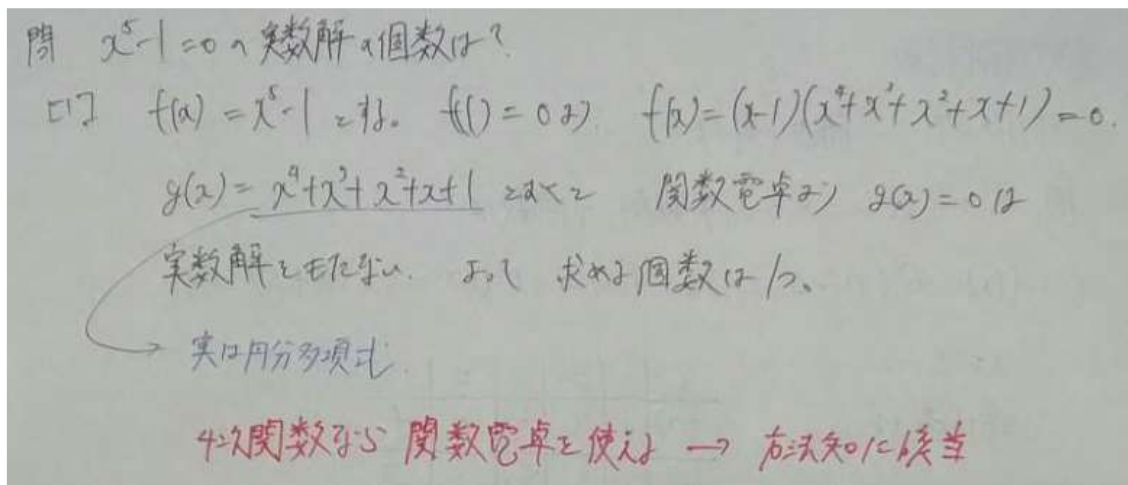 問 x⁵-1=0の実数解の個数は?
[1] f(x)=x⁵-1とする。 f(1)=0より f(x)=(x-1)(x⁴+x³+x²+x+1)=0.
g(x)=x⁴+x³+x²+x+1とおくと 関数電卓より g(x)=0は
実数解をもたない. よって 求める個数は1つ。
→ 実は円分多項式.
4次関数なら 関数電卓を使える → 方法知①に該当